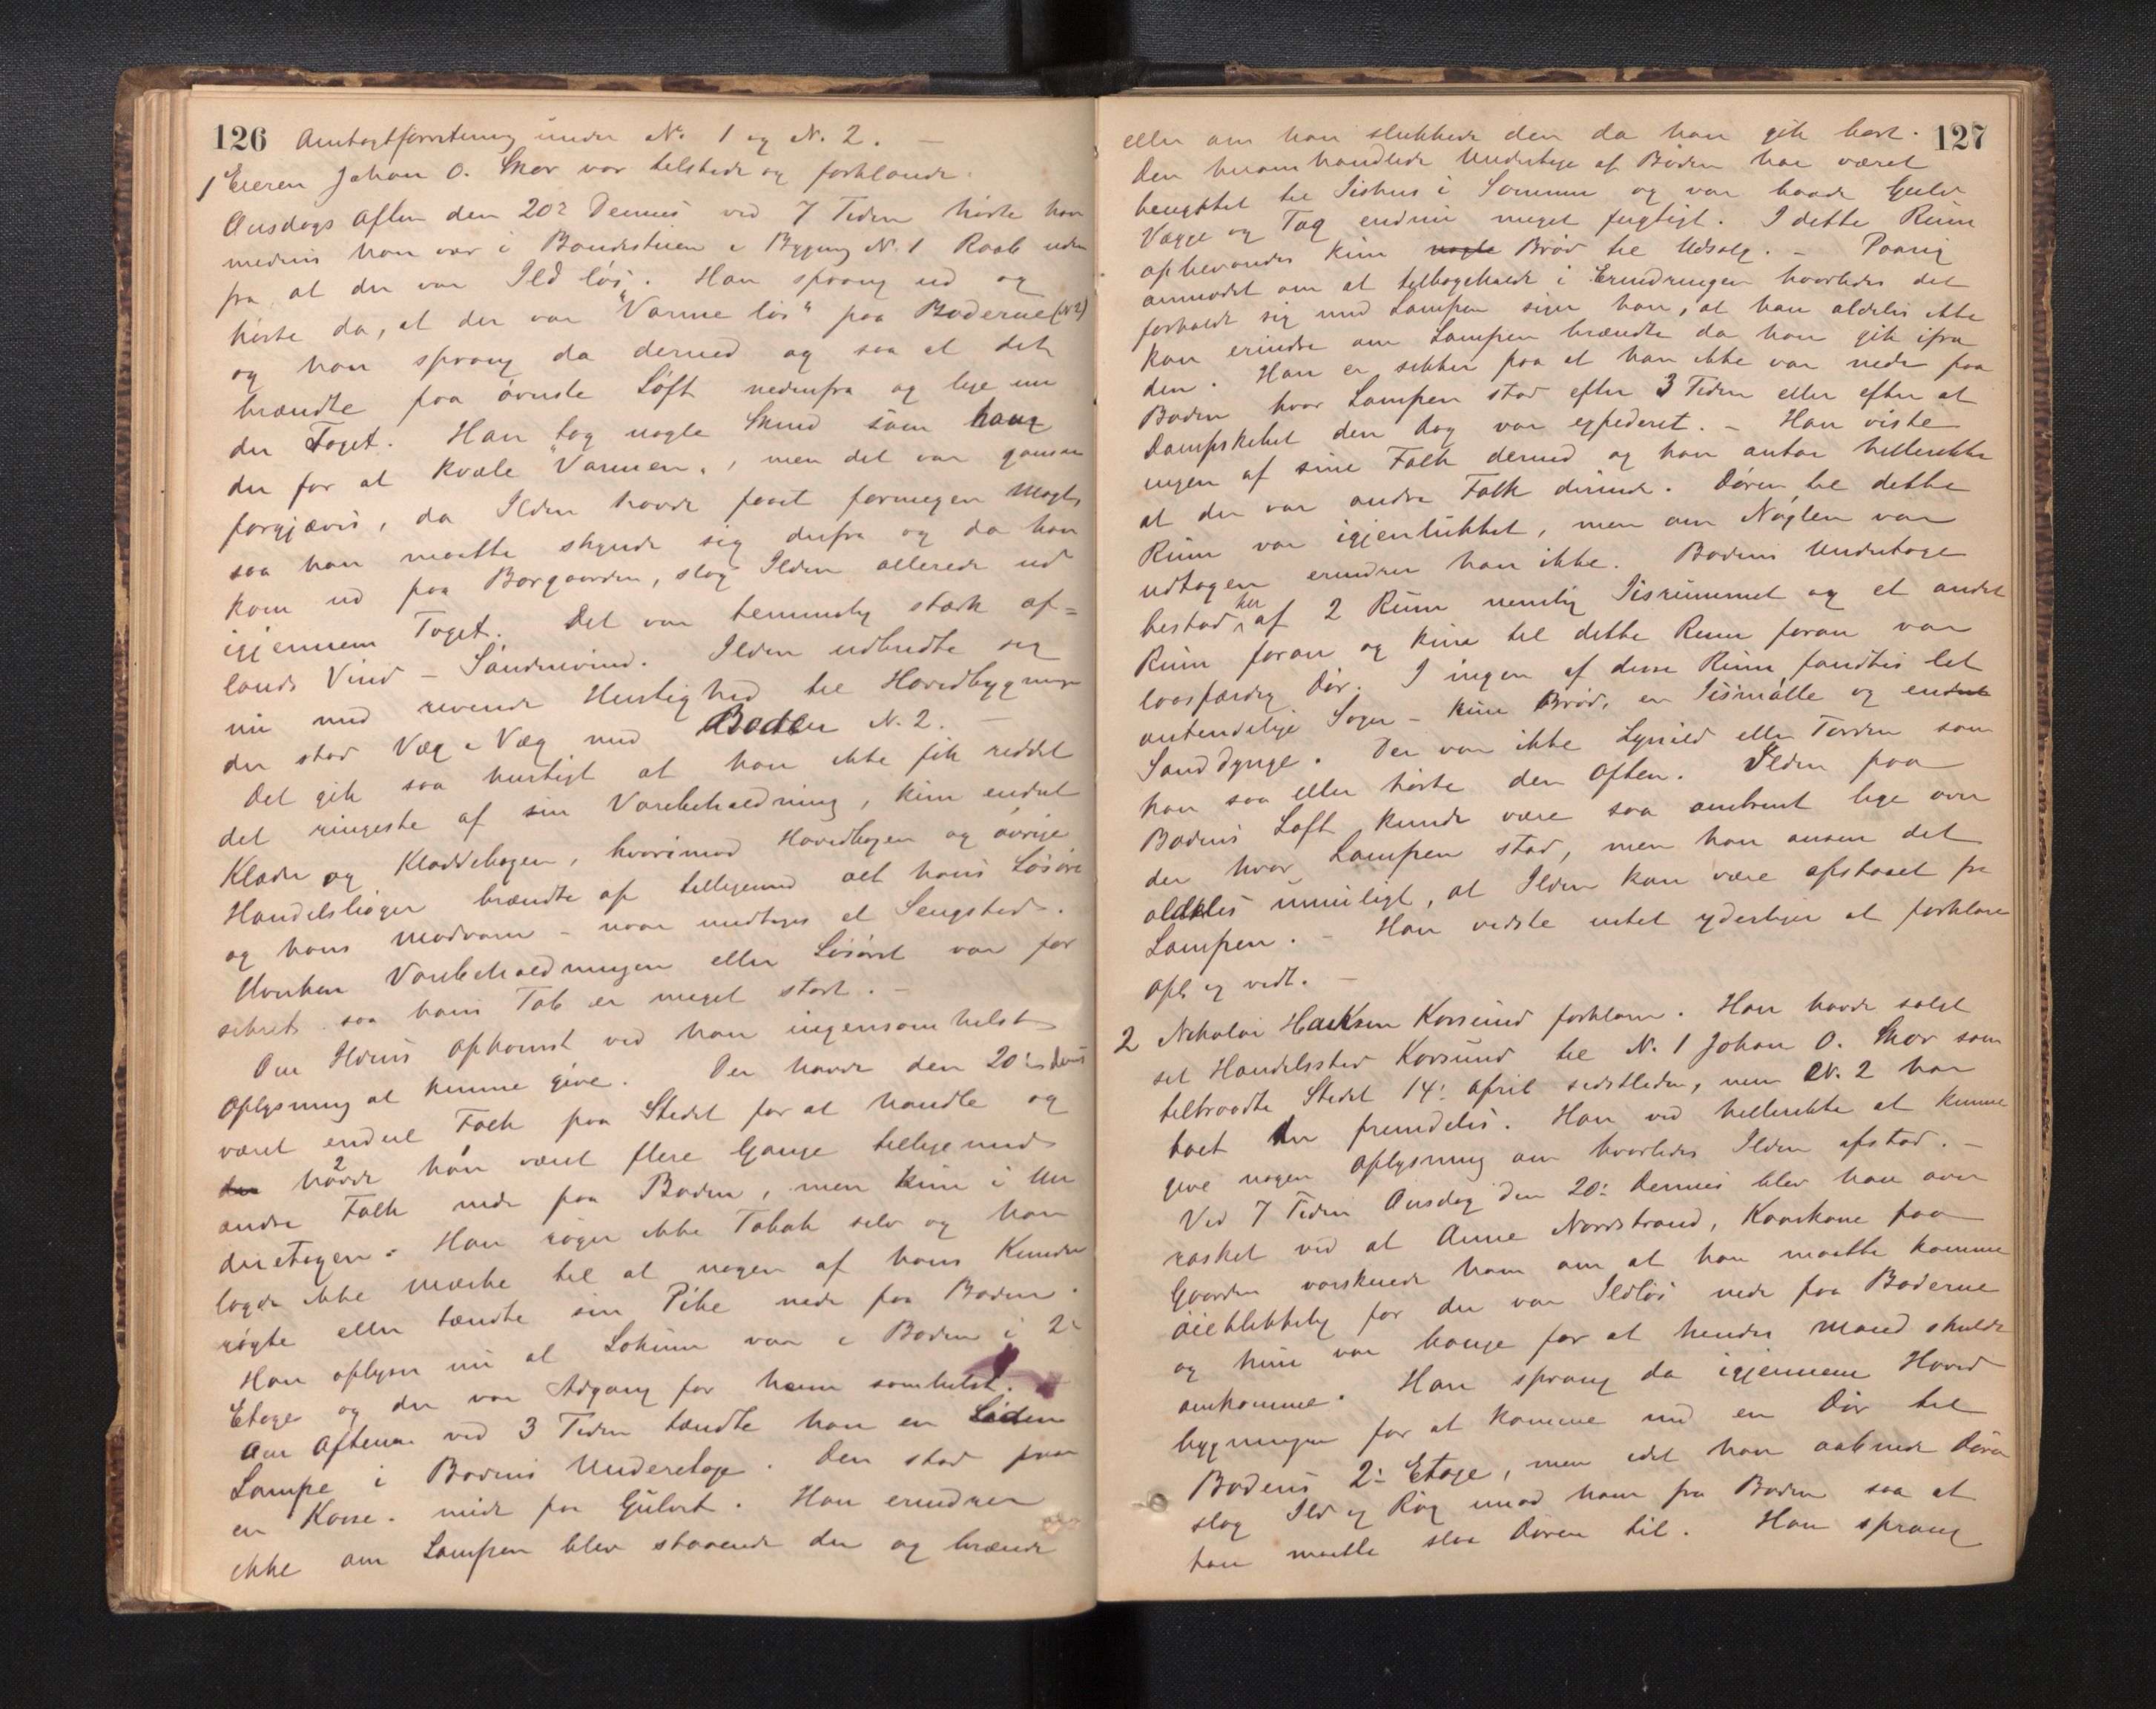 126 Amtagtforretning under No 1 og N. 2. —
1 Eieren Johan O. Skor var tilstede og forklarede.
Onsdags Aften den 20de Dennes ved 7 Tiden hørte han
medens han var i Bondestuen i Bygning N. 1 Raab uden
fra, at der var Ild løs. Han sprang ud og
hørte da, at der var "Varme løs" paa Boderne (N2)
og han sprang da derned og saa at det
brændte paa øverste Loft nedenfra og lige un
der Taget. Han tog nogle Skind som hang
der for at kvæle "Varmen", men det var ganske
forgjæves, da Ilden havde faaet formegen Magt,
saa han maatte skynde sig derfra og da han
kom ud paa Borgaarden, slog Ilden allerede ud
igjennem Taget. Det var temmelig stærk af=
lands Vind - Søndenvind. Ilden udbredte sig
nu med rivende Hurtighed til Hovedbygningen
der stod Væg i Væg med Boden N. 2. —
Det gik saa hurtigt at han ikke fik reddet
det ringeste af sin Varebeholdning, kun endel
Klæder og Kladdebogen, hvorimod Hovedbogen og øvrige
Handelsbøger brændte op tilligemed alt hans Løsøre
og hans Madvarer - naar undtages et Sengested.
Hverken Varebeholdningen eller Løsøret var for
sikret saa hans Tab er meget stort. —
Om Ildens Opkomst ved han ingensomhelst
Oplysning at kunne give. Der havde den 20de ds
været endel Folk paa Stedet for at handle og
der havde han været flere Gange tilligemed 2
andre Folk nede paa Boden, men kun i Un
deretagen. Han røger ikke Tobak selv og han
lagde ikke Mærke til at nogen af hans Kunder
røgte eller tændte sin Pibe nede paa Boden.
Han oplyser nu at Lokum var i Boden i 2.
Etage og der var Adgang for hvem somhelst. —
Om Aftenen ved 3 Tiden tændte han en Liden
Lampe i Bodens Underetage. Den stod paa
en Kasse midt paa Gulvet. Han erindrer
ikke om Lampen blev staaende der og brænde
127
eller om han slukkede den da han gik bort.
Den heromhandlede Underetage af Boden har været
benyttet til Iishus i Sommer og var baade Gulv
Vægge og Tag endnu meget fugtigt. I dette Rum
opbevaredes kun nogle Brød til Udsalg. — Paany
anmodet om at tilbagekalde i Erindringen hvorledes det
forholdt sig med Lampen siger han, at han aldeles ikke
kan erindre om Lampen brændte da han gik ifra
den. Han er sikker paa at han ikke var nede paa
Boden hvor Lampen stod efter 3 Tiden eller efter at
Dampskibet den Dag var expederet. — Han viste
ingen af sine Folk derned og han antar hellerikke
at der var andre Folk derinde. Døren til dette
Rum var igjenlukket, men om Nøglen var
udtagen erindrer han ikke. Bodens Underetage
bestod her af 2 Rum nemlig Iisrummet og et andet
Rum foran og kun til dette Rum foran var
laasfærdig Dør. I ingen af disse Rum fandtes let
antændelige Sager - kun Brød, en Iismølle og endnu
Sanddynge. Der var ikke Lynild eller Torden som
han saa eller hørte den Aften. Ilden paa
Bodens Loft kunde være saa omtrent lige over
der hvor Lampen stod, men han anser det
aldeles umuligt, at Ilden kan være opstaaet fra
Lampen. — Han vidste intet yderligere at forklare
Opl. og vedt. —
2 Nikolai Hacksen Korssund forklarer. Han havde solgt
sit Handelssted Korssund til N. 1 Johan O. Skor som
tiltraadte Stedet 14. April sidstleden, men N. 2 har
boet der fremdeles. Han ved hellerikke at kunne
give nogen Oplysning om hvorledes Ilden opstod. —
Ved 7 Tiden Onsdag den 20. Dennes blev han over
rasket ved at Anne Nordstrand, Kaarkone paa
Gaarden varskuede ham om at han maatte komme
øieblikkelig for der var Ildløs nede paa Boderne
og hun var bange for at hendes Mand skulde
omkomme. Han sprang da igjennem Hoved
bygningen for at komme ind en Dør til
Bodens 2. Etage, men idet han aabnede Døren
slog Ild og Røg imod ham fra Boden saa at
han maatte slaa Døren til. Han sprang